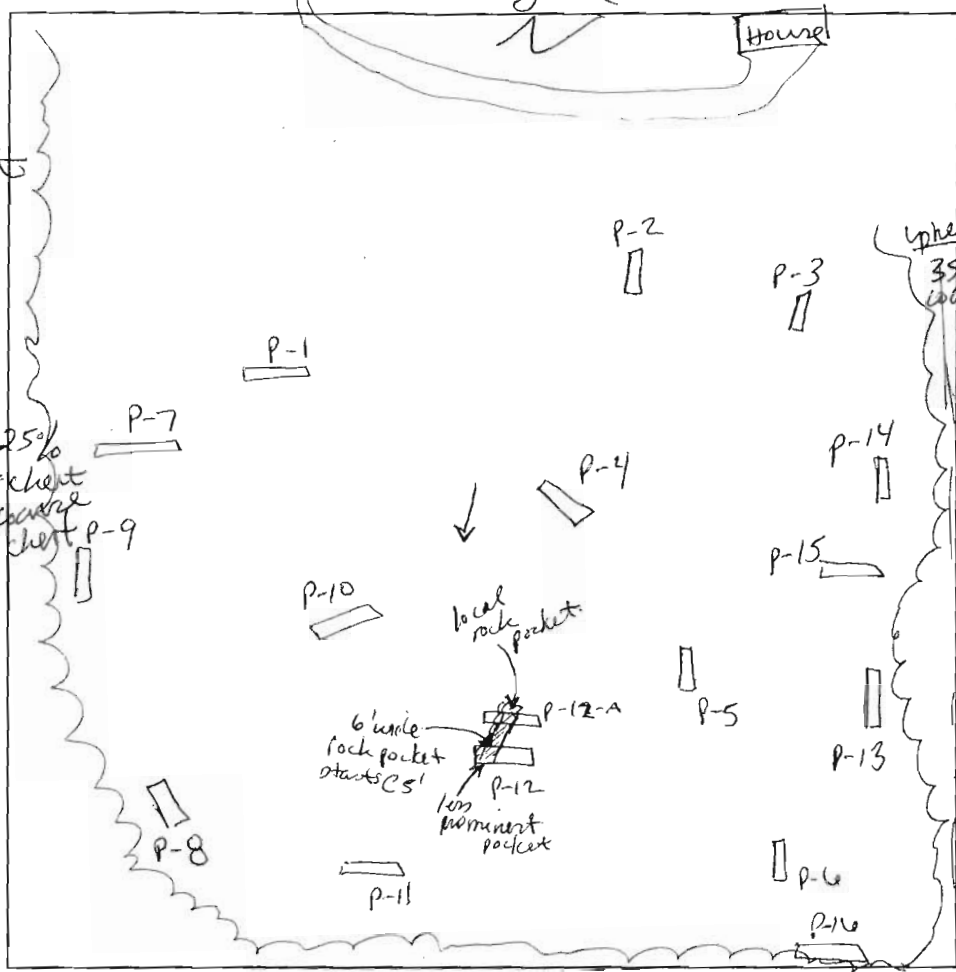 House
P-2
P-3
P-1
P-7
P-14
25%
chert
coarse
chert
P-4
P-9
P-15
P-10
local
rock
pocket
P-12-A
P-5
6' wide
rock pocket
starts @ 5'
P-13
P-12
less
prominent
pocket
P-8
P-11
P-6
P-16
35